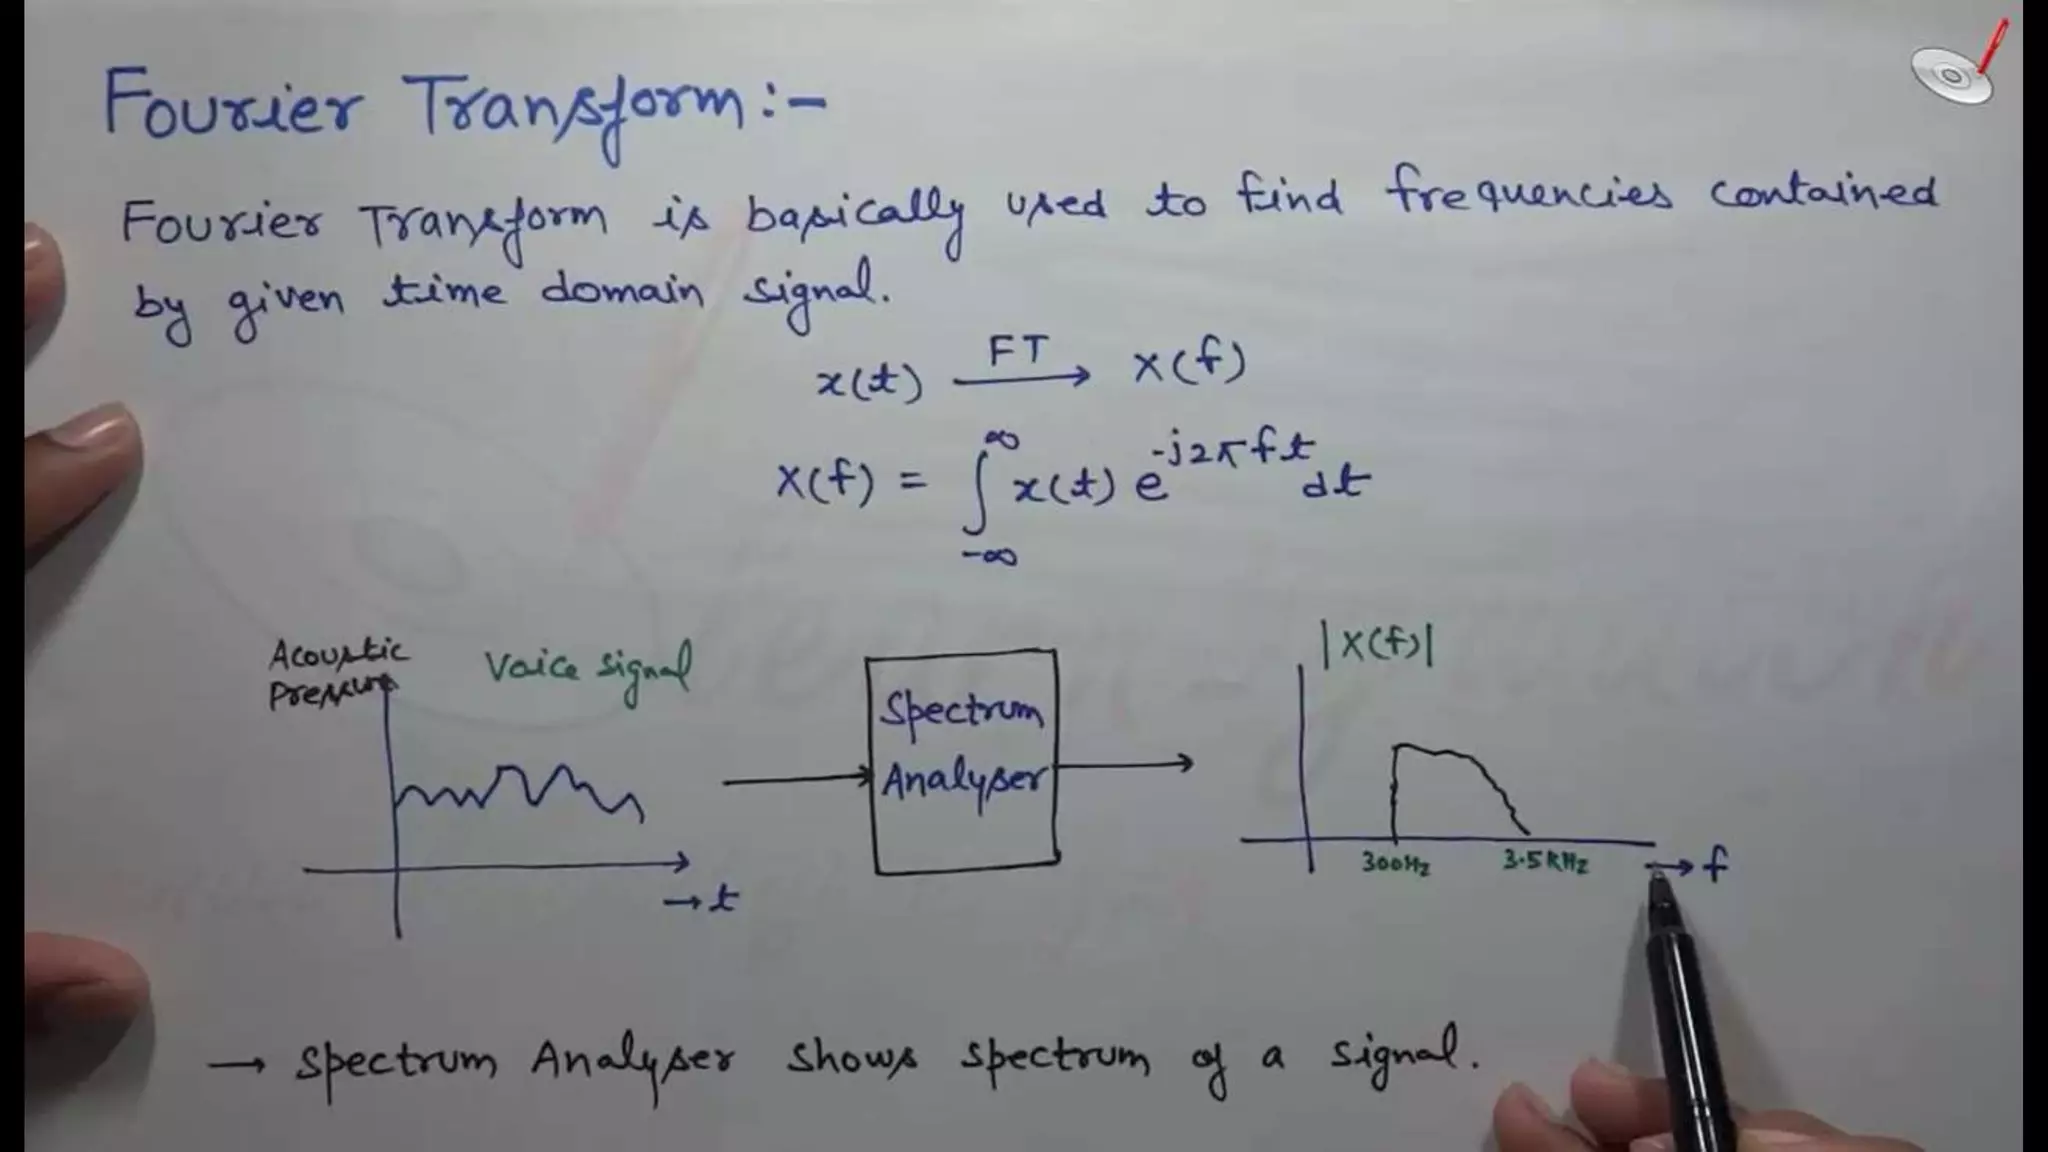 Fourier Transform:-
Fourier Transform is basically used to find frequencies contained
by given time domain signal.
x(t) FT→ X(f)
X(f) = ∫_{-∞}^{∞} x(t) e^{-j2πft} dt
Acoustic
Pressure
Voice signal
→ t
Spectrum
Analyser
|X(f)|
300Hz 3.5KHz → f
→ Spectrum Analyser shows spectrum of a signal.